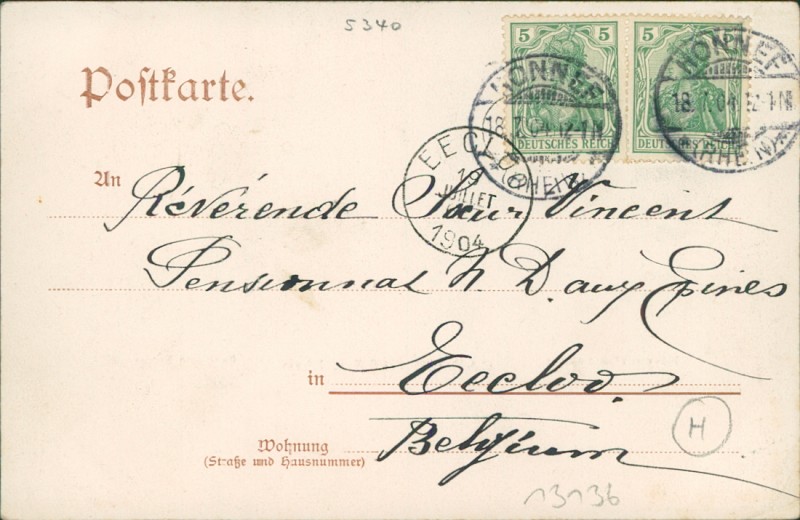 5340
5 5
DEUTSCHES REICH DEUTSCHES REICH
HONNEF
18.7.04.12-1N
(RHEIN)
HONNEF
18.7.04.12-1N
(RHEIN)
Postkarte.
EECLOO
19
JUILLET
1904
An Révérende Sœur Vincent
Pensionnat N. D. aux Épines
in Eecloo.
Belgium
Wohnung
(Straße und Hausnummer)
H
13136